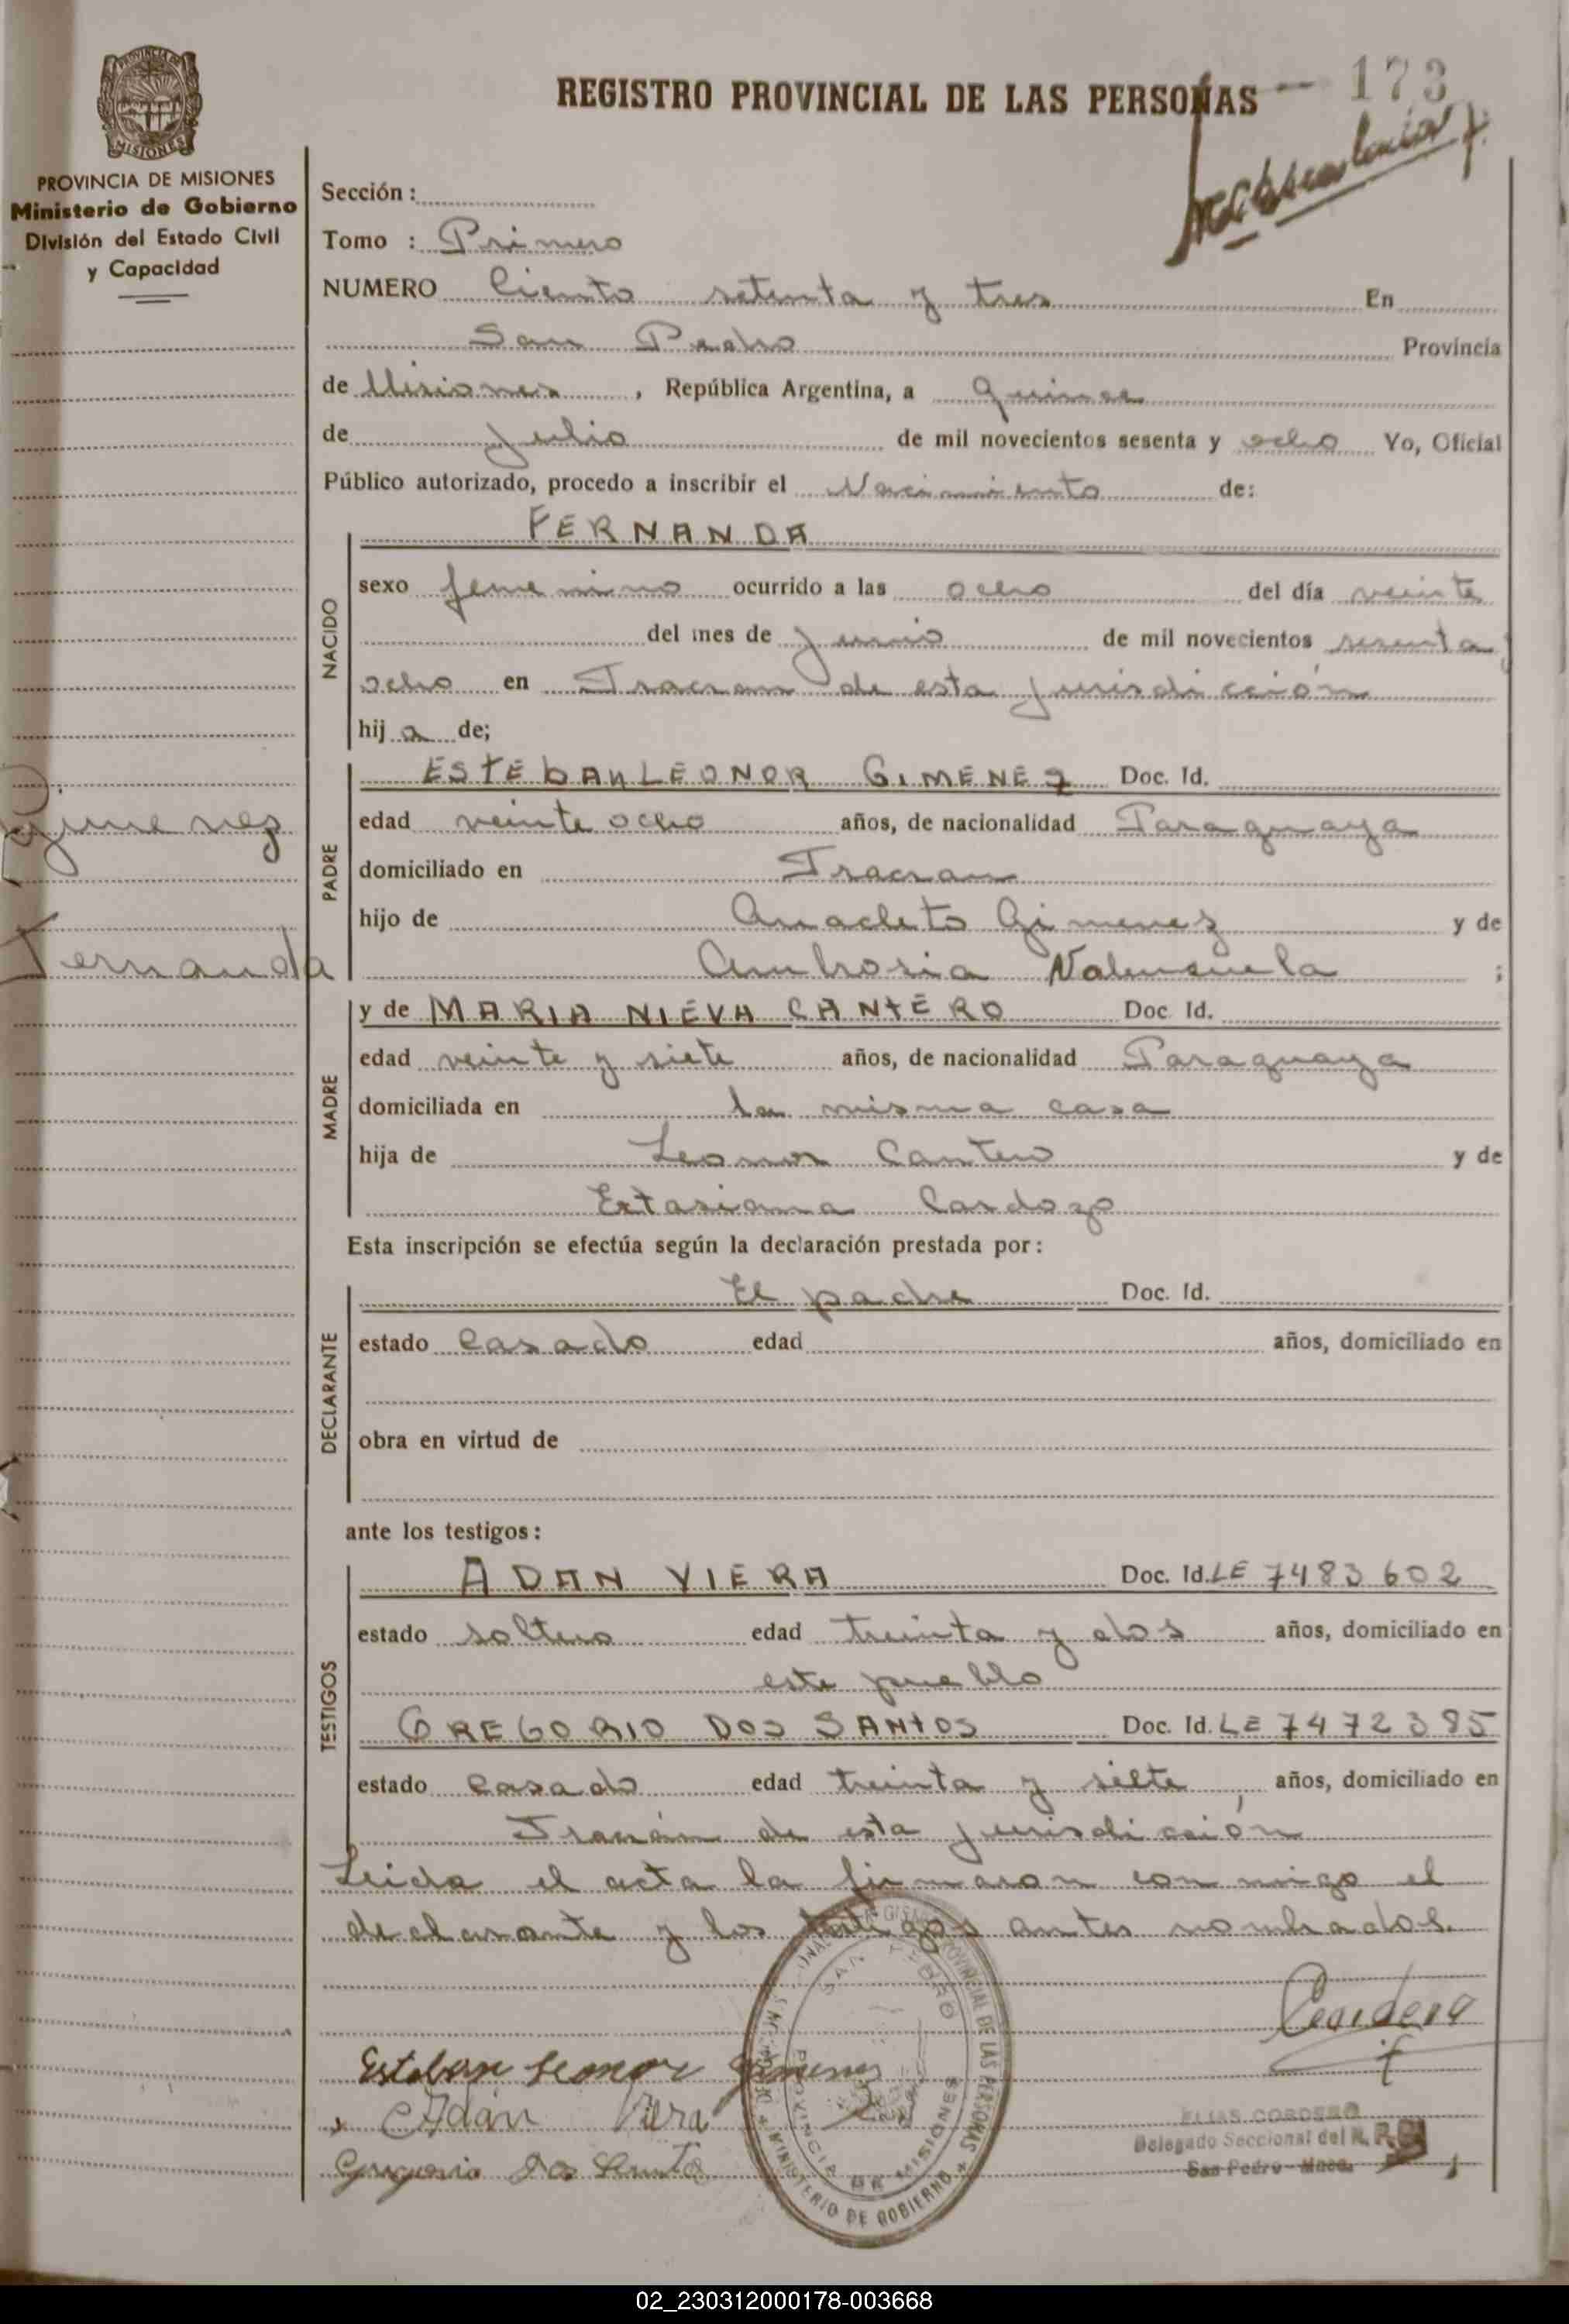 REGISTRO PROVINCIAL DE LAS PERSONAS
173
PROVINCIA DE MISIONES
MISIONES
PROVINCIA DE MISIONES
Ministerio de Gobierno
División del Estado Civil
y Capacidad
Sección:
Tomo : Primero
NUMERO Ciento setenta y tres En
San Pedro Provincia
de Misiones, República Argentina, a quince
de julio de mil novecientos sesenta y ocho Yo, Oficial
Público autorizado, procedo a inscribir el Nacimiento de:
NACIDO
FERNANDA
sexo femenino ocurrido a las ocho del día veinte
del mes de junio de mil novecientos sesenta y
ocho en Tracran de esta jurisdicción
hija de;
Gimenez
Fernanda
PADRE
ESTEBAN LEONOR GIMENEZ Doc. Id.
edad veinte ocho años, de nacionalidad Paraguaya
domiciliado en Tracran
hijo de Anacleto Gimenez y de
Ambrosia Valensuela ;
MADRE
y de MARIA NIEVA CANTERO Doc. Id.
edad veinte y siete años, de nacionalidad Paraguaya
domiciliada en la misma casa
hija de Leonor Cantero y de
Estasiana Cardozo
Esta inscripción se efectúa según la declaración prestada por:
DECLARANTE
El padre Doc. Id.
estado Casado edad años, domiciliado en
obra en virtud de
ante los testigos:
TESTIGOS
ADAN VIERA Doc. Id. LE 7483602
estado soltero edad treinta y dos años, domiciliado en
este pueblo
GREGORIO DOS SANTOS Doc. Id. LE 7472385
estado Casado edad treinta y siete, años, domiciliado en
Tracrán de esta jurisdicción
Leida el acta la firmaron con migo el
declarante y los testigos antes nombrados.
Esteban Leonor Gimenez
Adán Viera
Gregorio Dos Santos
SAN PEDRO
PROVINCIA DE MISIONES
PROVINCIAL DE LAS PERSONAS
MINISTERIO DE GOBIERNO
ELIAS CORDERO
Delegado Seccional del R.P.P.
San Pedro - Mnes.
02_230312000178-003668